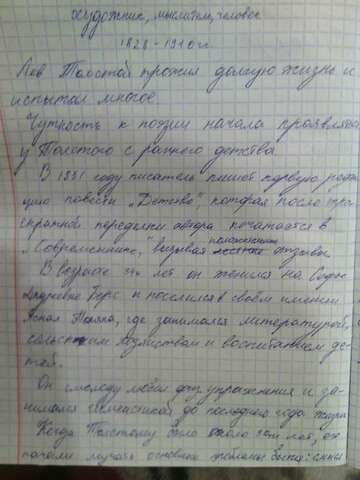 художник, мыслитель, человек
1828-1910 гг
Лев Толстой прожил долгую жизнь и
испытал многое.
Чуткость к поэзии начала проявляться
у Толстого с раннего детства.
В 1851 году писатель пишет первую редак
цию повести „Детство", которая после трё
хкратной переделки автора печатается в
„Современнике," вызывая положительные отзывы.
В возрасте 34 лет он женился на Софье
Андреевне Берс и поселился в своём имении
Ясная Поляна, где занимался литературой,
сельским хозяйством и воспитанием де-
тей.
Он смолоду любил физ. упражнения и за-
нимался гимнастикой до последнего года жизни
Когда Толстому было около лет, его
начали мучать основные вопросы бытия: